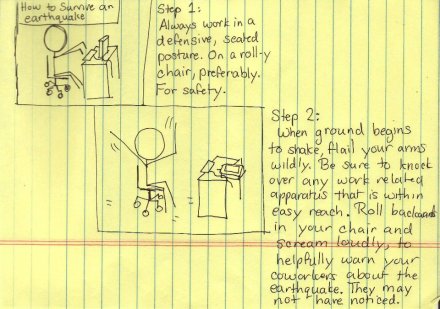 How to Survive an
earthquake
Step 1:
Always work in a
defensive, seated
posture. On a roll-y
chair, preferably.
For safety.
Step 2:
When ground begins
to shake, flail your arms
wildly. Be sure to knock
over any work related
apparatus that is within
easy reach. Roll backwards
in your chair and
scream loudly, to
helpfully warn your
coworkers about the
earthquake. They may
not have noticed.